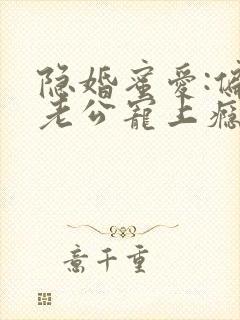 隐婚蜜爱:偏
老公宠上瘾
意千重